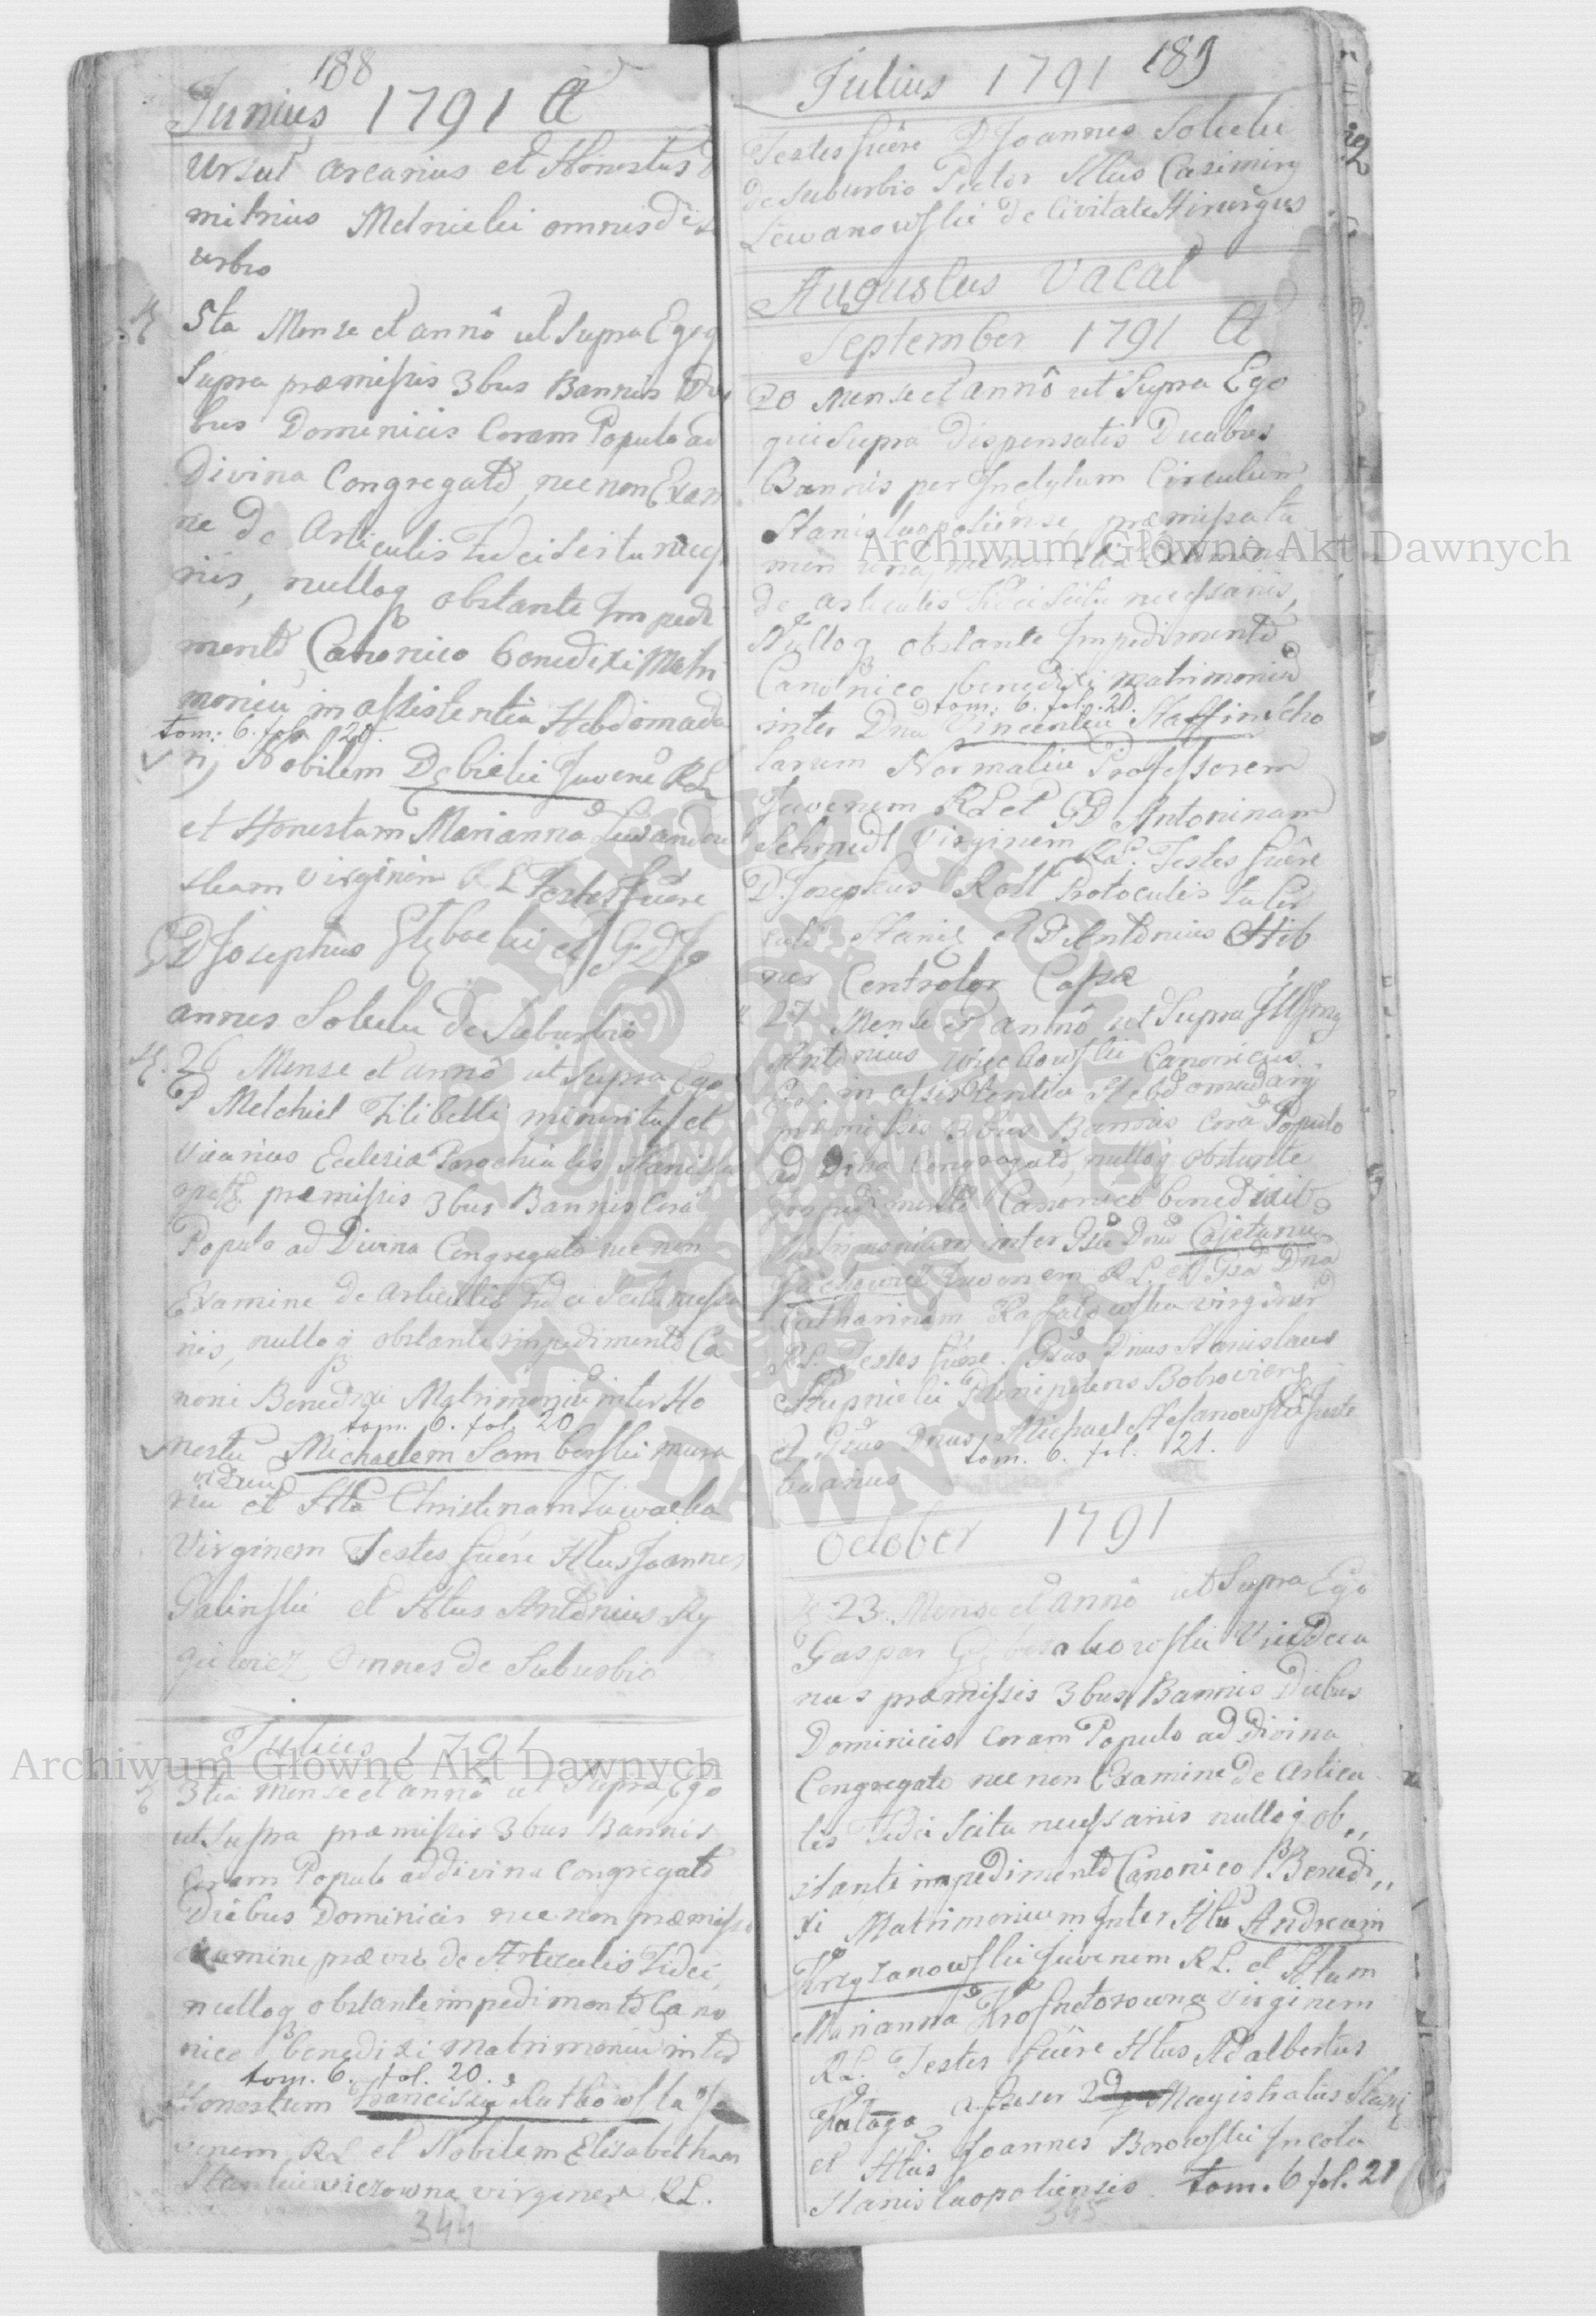 188
Junius 1791 A
Ursul arcarius et Honestus D
mitrius Melnicki omnes de
urbio
5ta Mense et annô ut Supra Ego q
Supra præmissis 3bus Bannis
bus Dominicis Coram Populo ad
Divina Congregatô nec non Exam
ne De Articulis Fidei Scitu necess
riis, nulloq obstante Impedi
mentô Canonico benedixi Matri
moniu in assistentia Hebdomada
tom: 6. fol. 20.
rij Nobilem Debicki Juvenē RL
et Honestam Mariannā Lewandow
skam Virginem RL Testes fuere
GD Josephus et GD Jo
annes Solecki de Suburbio
26 Mense et annô ut Supra Ego
P Melchiel Zilibelli minorita et
Vicarius Ecclesiæ Parochialis Stanisla
præmissis 3bus Bannis Corā
Populo ad Divina Congregatô nec non
Examine de Articulis Fidei Scitu necessa
riis, nulloq obstante impedimentô Ca
noni Benedixi Matrimoniū inter Ho
tom. 6. fol. 20
nestū Michaelem Samborski mura
viduū
riū et Htā Christinam
Virginem Testes fuere Htus Joannes
Galinski et Htus Antonius Ry
Omnes de Suburbio
Julius 1791
3tia Mense et annô ut Supra Ego
ut Supra præmissis 3bus Bannis
Coram Populo ad divina Congregatô
Diebus Dominicis nec non præmisso
examine prævio de Articulis Fidei,
nulloq obstante impedimentô Cano
nico benedixi Matrimoniū inter
tom. 6. fol. 20.
Honestum Franciscū Rutkowski Ju
venem RL et Nobilem Elisabetham
Stankiewiczowna virginem RL.
344
189
Julius 1791
Testes fuêre D Joannes Solecki
de Suburbio Pictor Htus Casimirg
Lewanowski de Civitate Hirurgus
Augustus Vacat
September 1791 A
20 Mense et annô ut Supra Ego
qui Supra Dispensatis Duabus
Bannis per Inclytum Circulum
Stanislaopoliense, præmissa ta
men una,
de articulis Fidei Scitu necessariis,
Nulloq obstante Impedimentô
Canonico, benedixi matrimoniū
tom: 6. fol. 20.
inter Dnū Vincentiū Staffin Scho
larum Normaliū Professorem
Juvenem RL et GD Antoninam
Schmidt Virginem RL. Testes fuêre
D. Josephus Rost Protoculis
Stanis et D Antonius Hib
ner Centrolor Cassæ
27 Mense et annô ut Supra Illsmg
Antonius Canonicus
in assistentia Hebdomadarij
præmissis Bannis Corā Populo
ad Congregatô, nulloq obstante
Impedimentô Canonico benedixit
Matrimonium inter Gsū Dnū Cajetanū
Juvenem RL. et Gsā Dnā
Catharinam virginem
RL. Testes fuêre. Gsus Dnus Stanislaus
Stupnicki Plenipotens
et Gsus Dnus Michael Stefanowski
tom. 6. fol. 21.
October 1791
23. Mense et annô ut Supra Ego
Gaspar Vicedeca
nus præmissis 3bus Bannis Diebus
Dominicis Coram Populo ad divina
Congregato nec non Examine de Articu
lis Fidei Scitu necessariis nulloq ob,,
stante impedimentô Canonico Benedi,,
xi Matrimonium Inter Htū Andream
Krzyzanowski Juvenem RL. et Htam
Mariannā virginem
RL. Testes fuêre Htus Adalbertus
Kalaga Magistratus Stanis
et Htus Joannes Borowski Incola
Stanislaopoliensis. tom. 6 fol. 21
345
Archiwum Główne Akt Dawnych
Archiwum Główne Akt Dawnych
ARCHIWUM GŁÓWNE AKT DAWNYCH